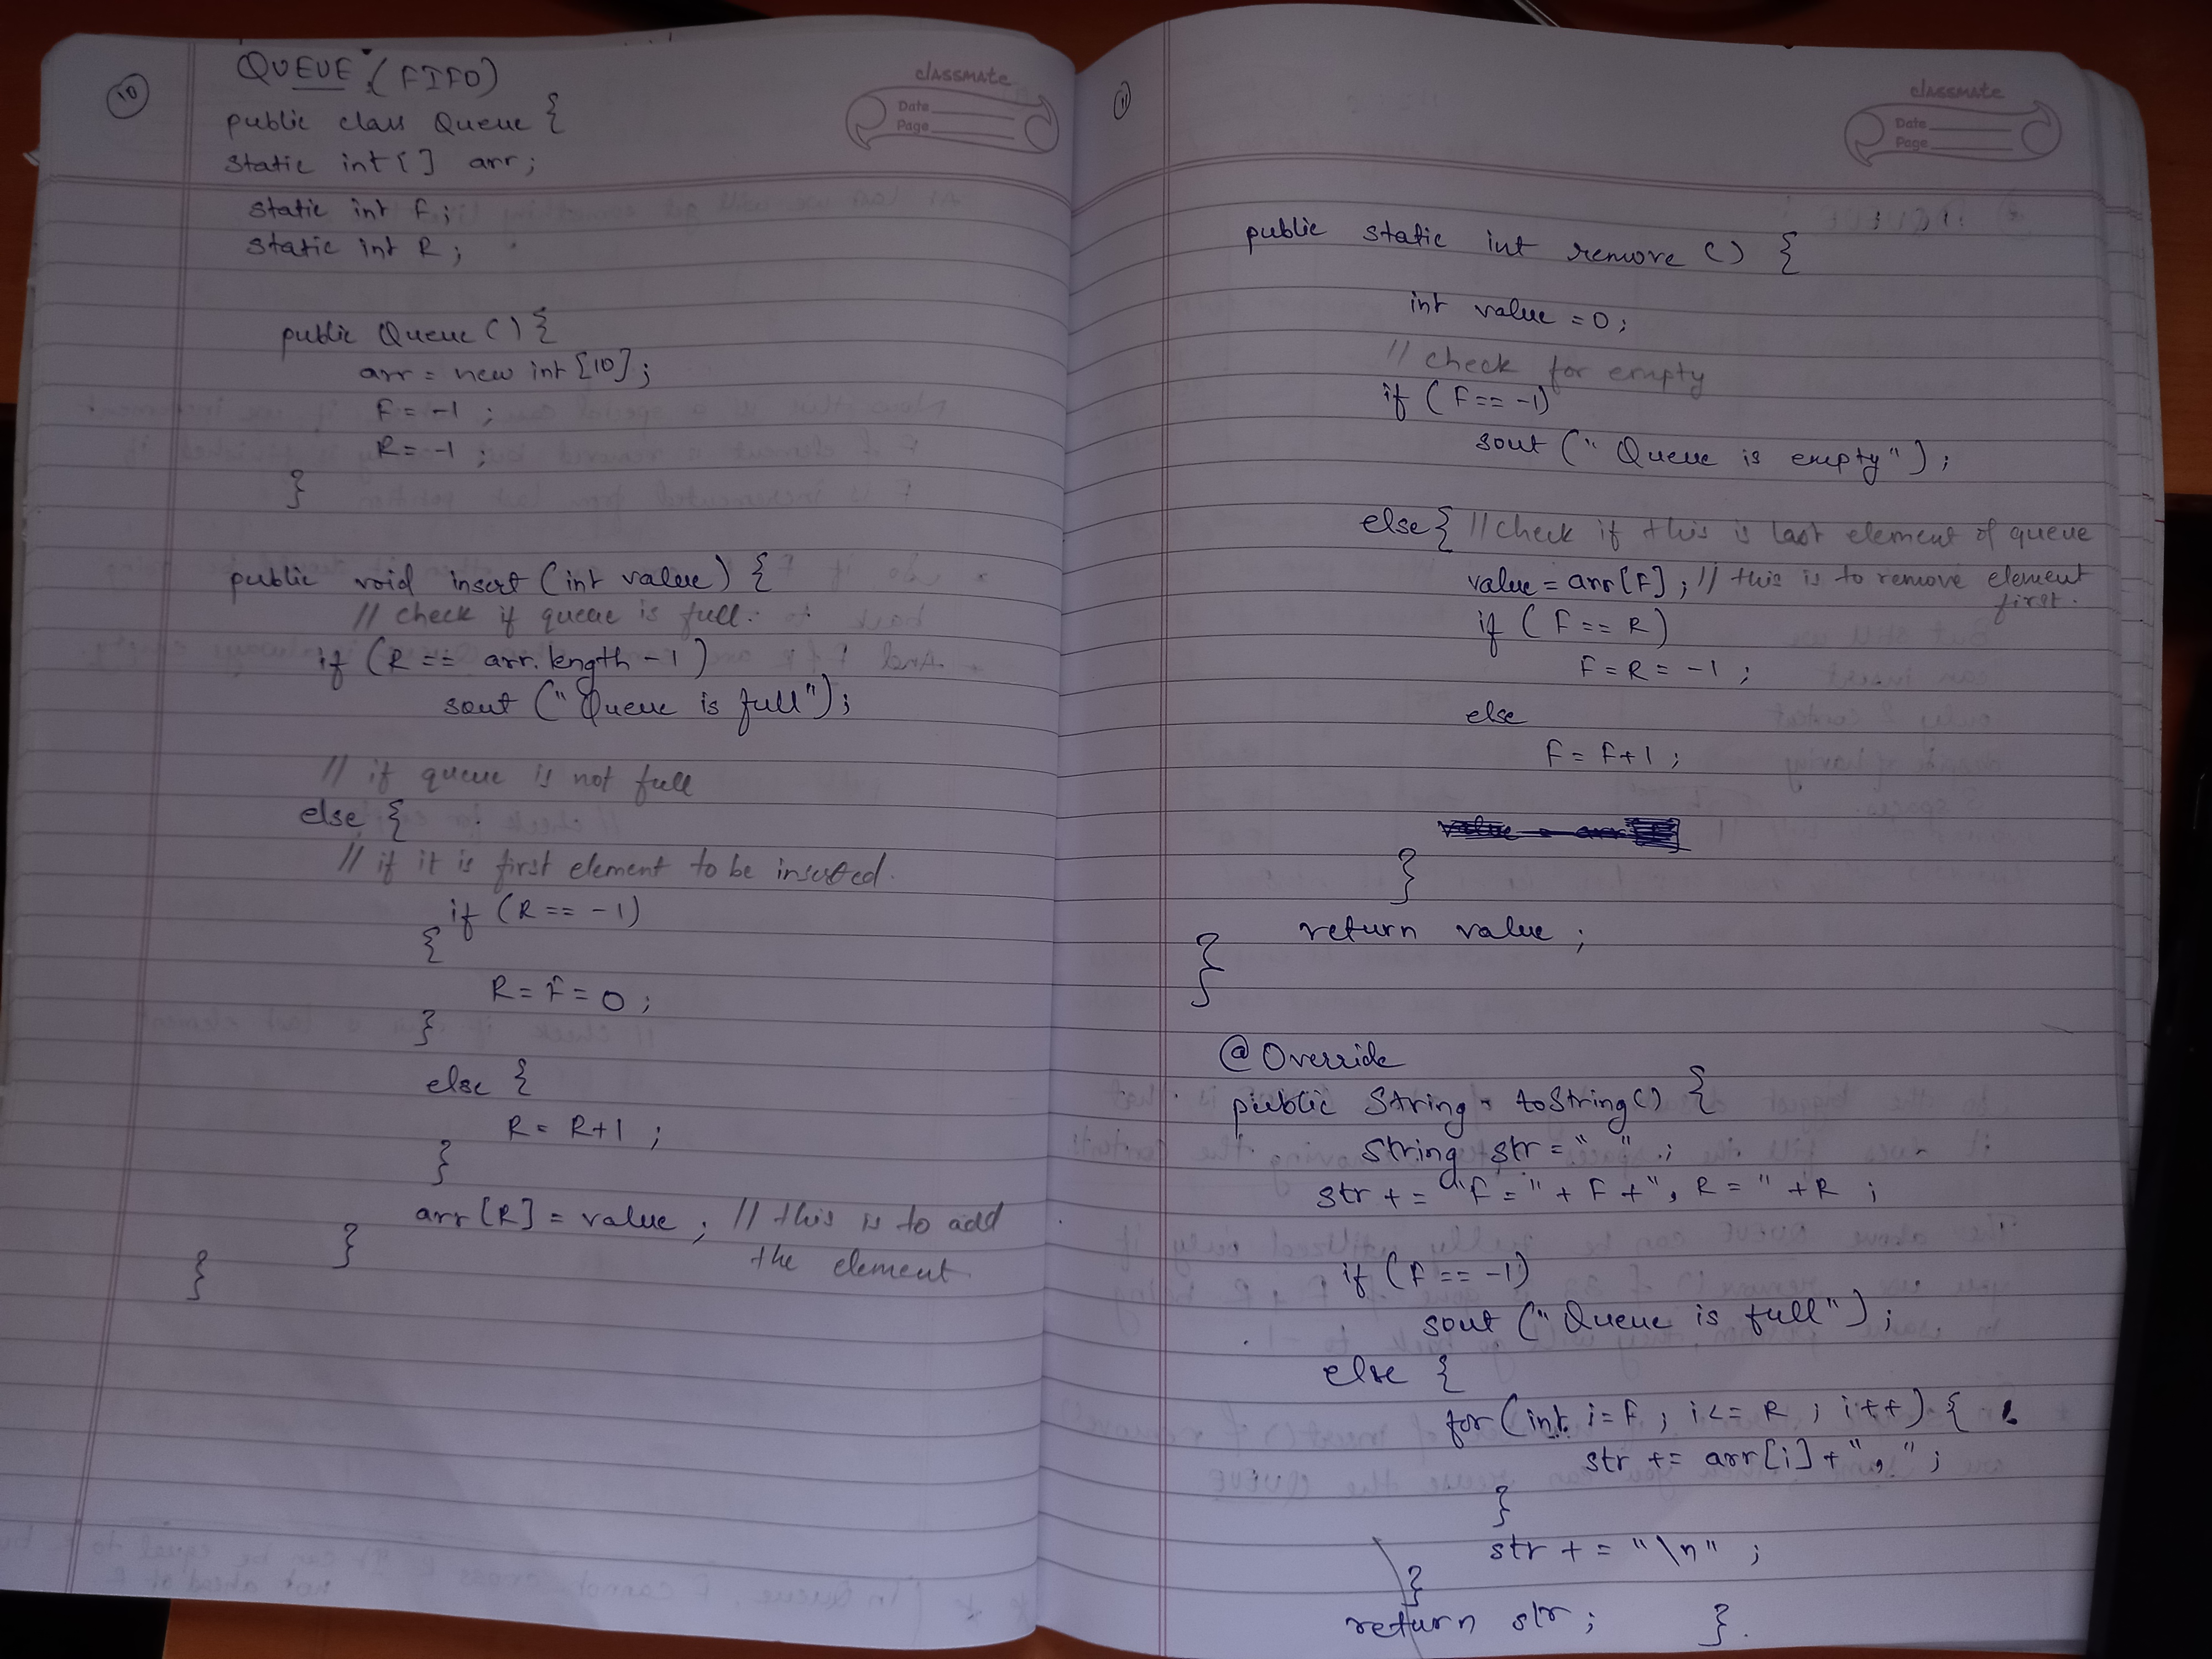 classmate
Date
Page
10
QUEUE (FIFO)
public class Queue {
static int[] arr;
static int F;
static int R;
public Queue () {
arr = new int [10];
F = -1 ;
R = -1 ;
}
public void insert (int value) {
// check if queue is full.
if (R == arr.length - 1)
sout ("Queue is full");
// if queue is not full
else {
// if it is first element to be inserted.
if (R == -1)
{
R = F = 0 ;
}
else {
R = R+1 ;
}
arr[R] = value ; // this is to add
the element.
}
}
classmate
Date
Page
11
public static int remove () {
int value = 0;
// check for empty
if (F == -1)
sout ("Queue is empty");
else { // check if this is last element of queue
value = arr[F] ; // this is to remove element
first.
if (F == R)
F = R = -1 ;
else
F = F+1 ;
}
return value ;
}
@Override
public String toString () {
String str = " " ;
str += "F = " + F + ", R = " + R ;
if (F == -1)
sout ("Queue is full") ;
else {
for (int i = F ; i <= R ; i++) {
str += arr[i] + ", " ;
}
str += "\n" ;
}
return str ; }.